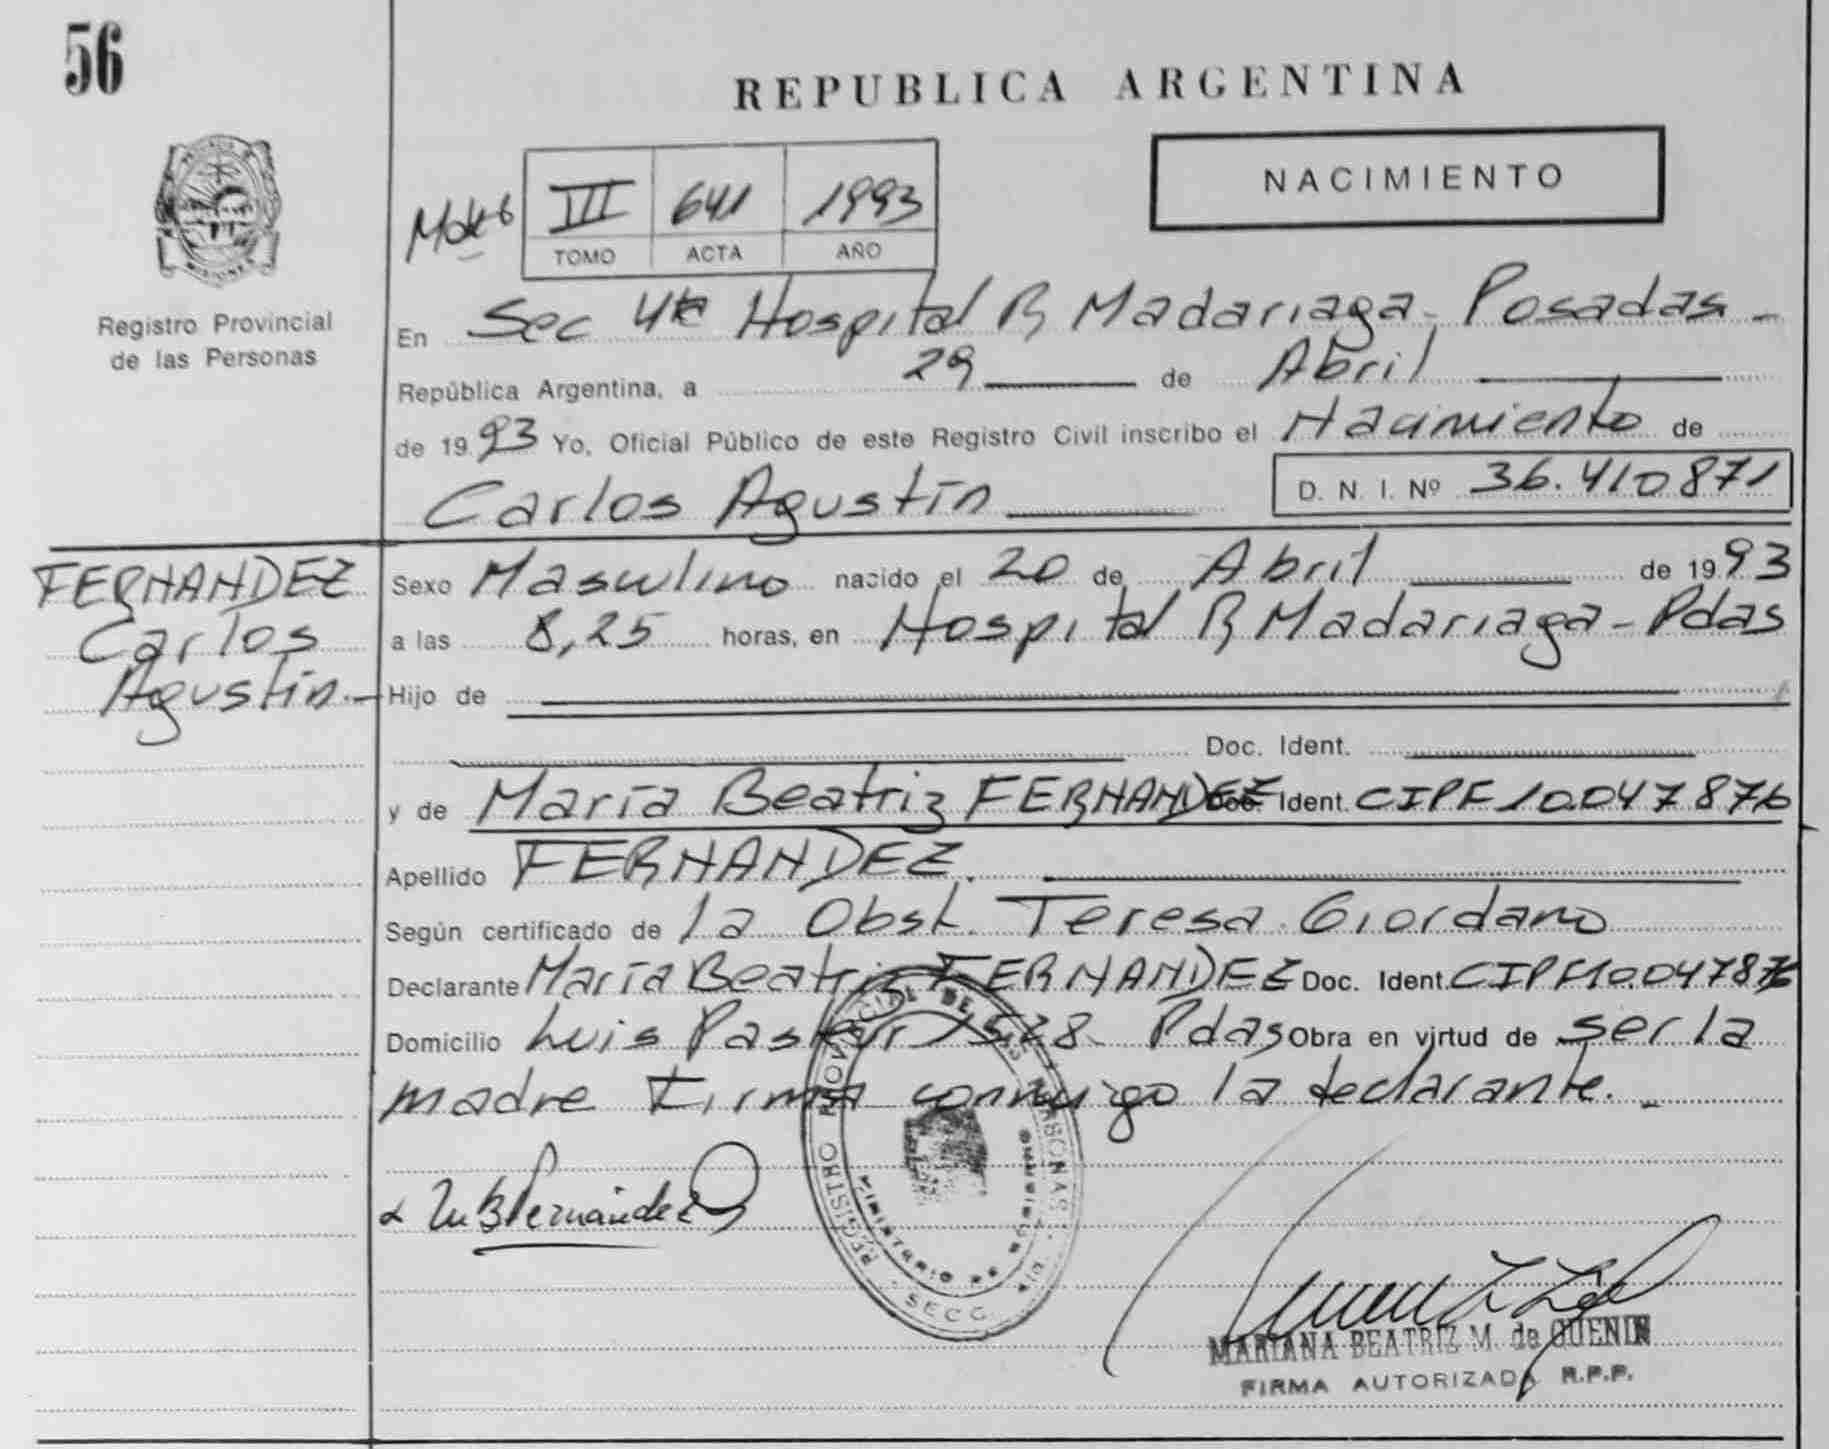 56
REPUBLICA ARGENTINA
NACIMIENTO
III 641 1993
TOMO ACTA AÑO
Registro Provincial
de las Personas
MISIONES
En Sec 4ta Hospital R Madariaga, Posadas -
República Argentina, a 29 de Abril
de 1993 Yo, Oficial Público de este Registro Civil inscribo el Nacimiento de
Carlos Agustín D. N. I. Nº 36.410871
FERNANDEZ
Carlos
Agustín.-
Sexo Masculino nacido el 20 de Abril de 1993
a las 8,25 horas, en Hospital R Madariaga - Pdas
Hijo de
Doc. Ident.
y de María Beatriz FERNANDEZ Doc. Ident. CIPF10.047876
Apellido FERNANDEZ.
Según certificado de la Obst. Teresa Giordano
Declarante María Beatriz FERNANDEZ Doc. Ident. CIPF10.047876
Domicilio Luis Pastur 1528 Pdas Obra en virtud de ser la
madre Firma conmigo la declarante. -
REGISTRO PROVINCIAL DE LAS PERSONAS
MINISTERIO DE GOBIERNO
SECC.
MBFernández
MARIANA BEATRIZ M. de GUENIN
FIRMA AUTORIZADA R.P.P.